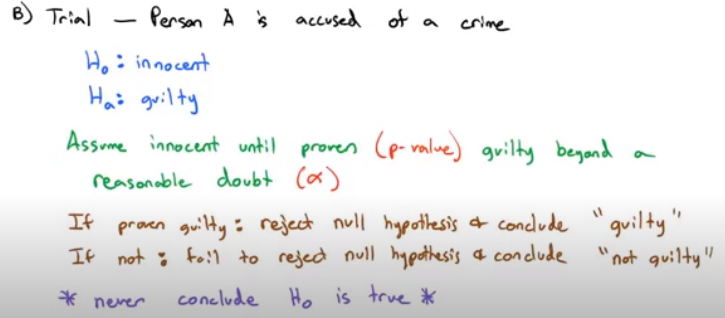 B) Trial – Person A is accused of a crime
H₀: innocent
Hₐ: guilty
Assume innocent until proven (p-value) guilty beyond a
reasonable doubt (α)
If proven guilty: reject null hypothesis & conclude "guilty"
If not: fail to reject null hypothesis & conclude "not guilty"
* never conclude H₀ is true *